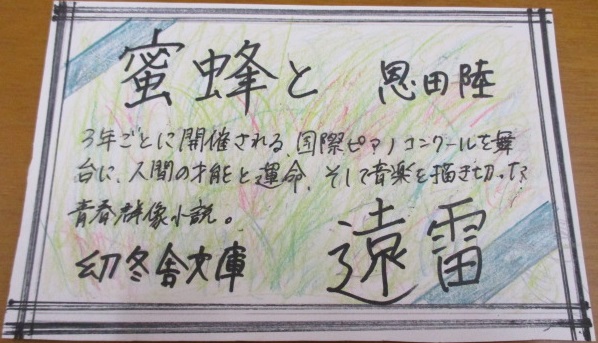 蜜蜂と 恩田陸
3年ごとに開催される、国際ピアノコンクールを舞
台に、人間の才能と運命、そして音楽を描き切った
青春群像小説。
幻冬舎文庫 遠雷